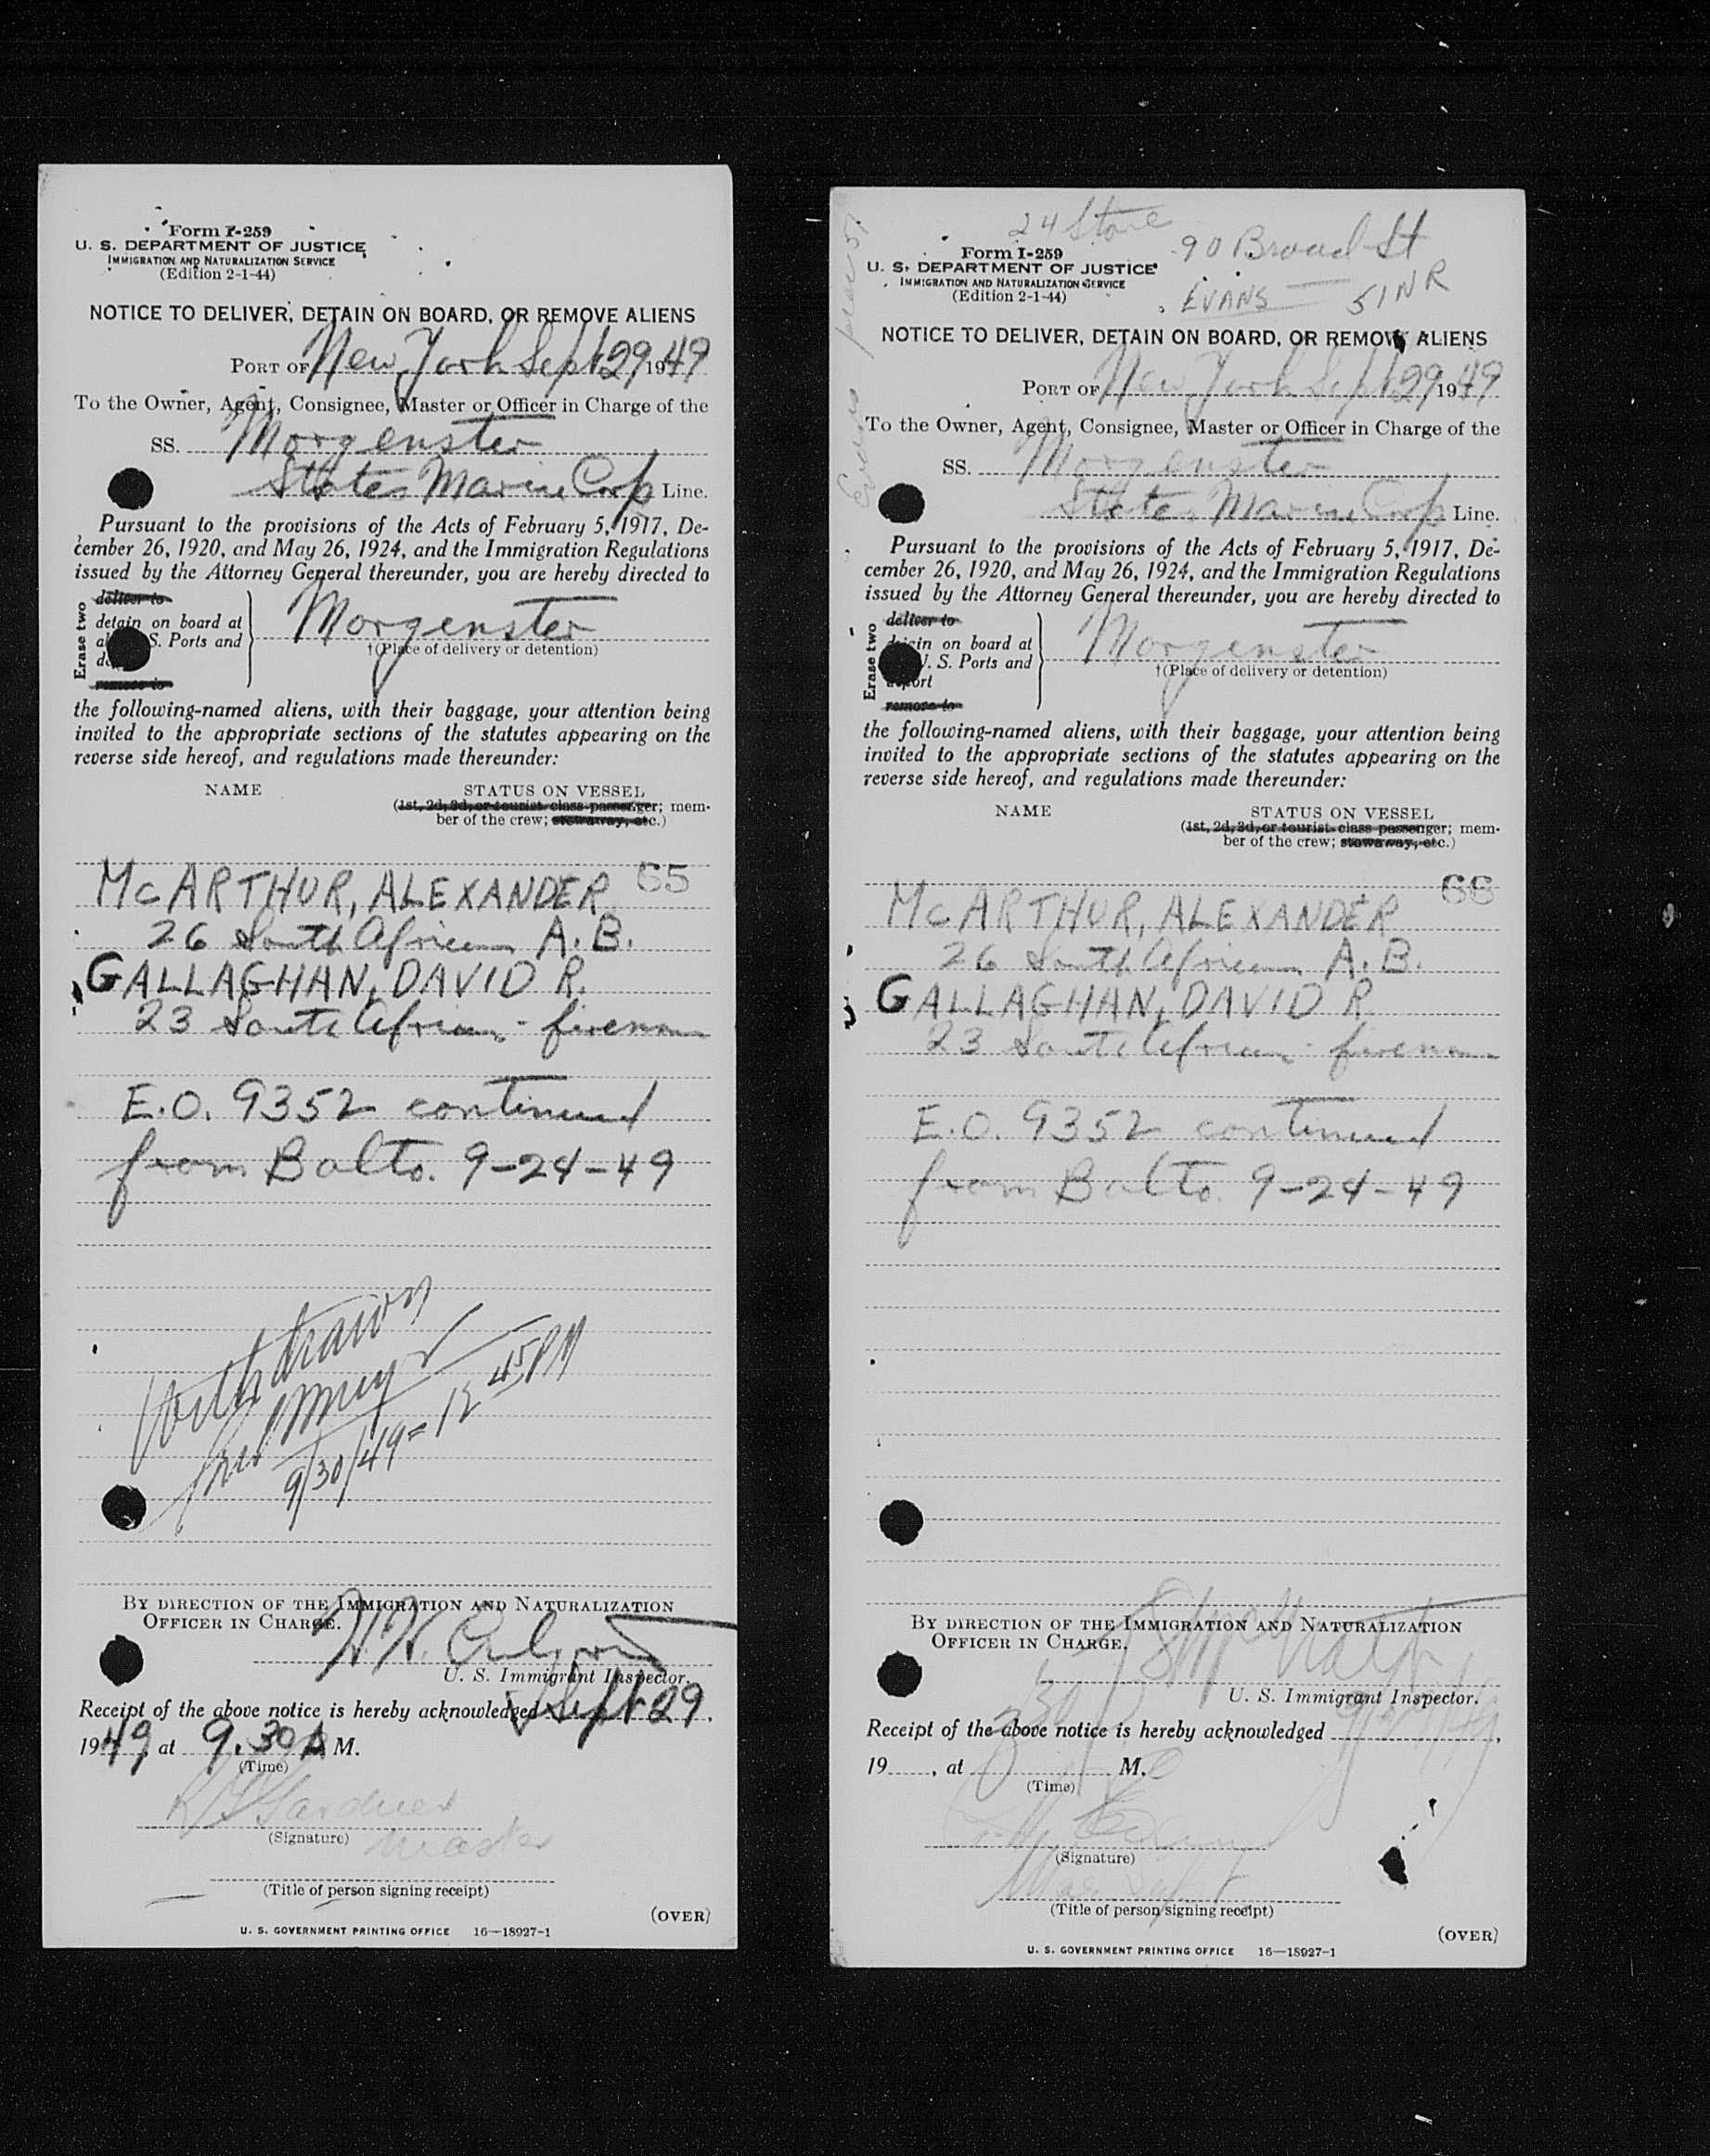 Form I-259
U. S. DEPARTMENT OF JUSTICE
IMMIGRATION AND NATURALIZATION SERVICE
(Edition 2-1-44)
NOTICE TO DELIVER, DETAIN ON BOARD, OR REMOVE ALIENS
PORT OF New York Sept 29 1949
To the Owner, Agent, Consignee, Master or Officer in Charge of the
SS. Morgenster
States Marine Corp Line.
Pursuant to the provisions of the Acts of February 5, 1917, De-
cember 26, 1920, and May 26, 1924, and the Immigration Regulations
issued by the Attorney General thereunder, you are hereby directed to
Erase two
deliver to
detain on board at
S. Ports and
remove to
Morgenster
†(Place of delivery or detention)
the following-named aliens, with their baggage, your attention being
invited to the appropriate sections of the statutes appearing on the
reverse side hereof, and regulations made thereunder:
NAME STATUS ON VESSEL
(1st, 2d, 3d, or tourist class passenger; mem-
ber of the crew; stowaway, etc.)
65
McARTHUR, ALEXANDER
26 South African A.B.
GALLAGHAN, DAVID R.
23 South African - fireman
E.O. 9352 continued
from Balto. 9-24-49
Withdrawn
9/30/49 = 12 45 PM
BY DIRECTION OF THE IMMIGRATION AND NATURALIZATION
OFFICER IN CHARGE.
U. S. Immigrant Inspector.
Receipt of the above notice is hereby acknowledged Sept 29,
1949, at 9.30 A M.
(Time)
Gardner
(Signature) Master
(Title of person signing receipt)
(OVER)
U. S. GOVERNMENT PRINTING OFFICE 16—18927-1
24 Stone
90 Broad St
EVANS — 51NR
Form I-259
U. S. DEPARTMENT OF JUSTICE
IMMIGRATION AND NATURALIZATION SERVICE
(Edition 2-1-44)
NOTICE TO DELIVER, DETAIN ON BOARD, OR REMOVE ALIENS
PORT OF New York Sept 29 1949
To the Owner, Agent, Consignee, Master or Officer in Charge of the
SS. Morgenster
States Marine Corp Line.
Pursuant to the provisions of the Acts of February 5, 1917, De-
cember 26, 1920, and May 26, 1924, and the Immigration Regulations
issued by the Attorney General thereunder, you are hereby directed to
Erase two
deliver to
on board at
U. S. Ports and
remove to
Morgenster
†(Place of delivery or detention)
the following-named aliens, with their baggage, your attention being
invited to the appropriate sections of the statutes appearing on the
reverse side hereof, and regulations made thereunder:
NAME STATUS ON VESSEL
(1st, 2d, 3d, or tourist class passenger; mem-
ber of the crew; stowaway, etc.)
66
McARTHUR, ALEXANDER
26 South African A.B.
GALLAGHAN, DAVID R.
23 South African - fireman
E.O. 9352 continued
from Balto. 9-24-49
BY DIRECTION OF THE IMMIGRATION AND NATURALIZATION
OFFICER IN CHARGE.
U. S. Immigrant Inspector.
Receipt of the above notice is hereby acknowledged
19 , at M.
(Time)
(Signature)
(Title of person signing receipt)
(OVER)
U. S. GOVERNMENT PRINTING OFFICE 16—18927-1